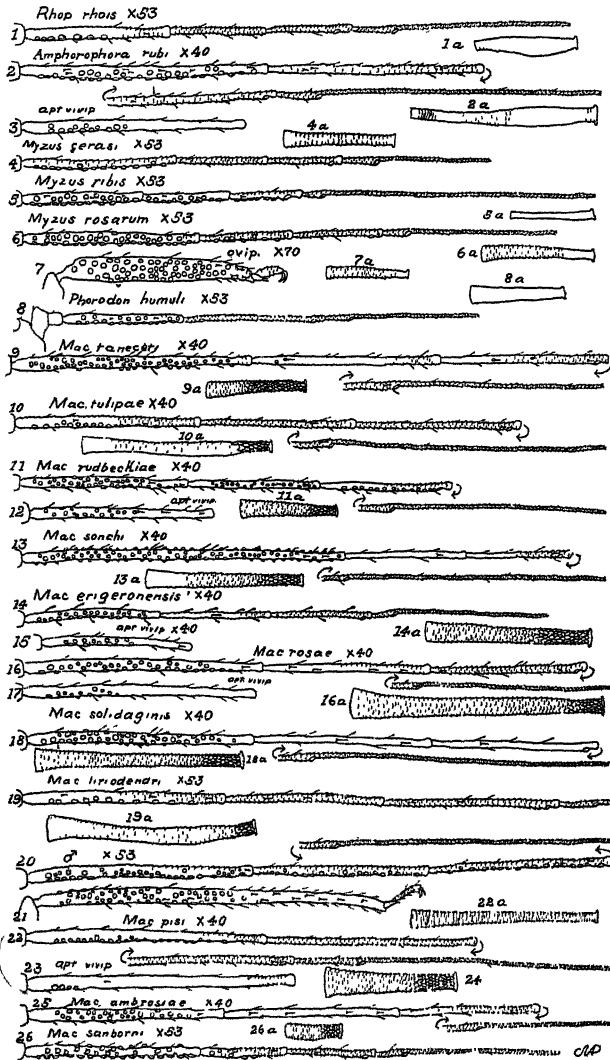 Rhop rhois X53
1
1a
Amphorophora rubi X40
2
2a
apt vivip
3
4a
Myzus cerasi X53
4
Myzus ribis X53
5
5a
Myzus rosarum X53
6
6a
ovip. X70
7
7a
8a
Phorodon humuli X53
8
Mac. taneceti X40
9
9a
10
Mac. tulipae X40
10a
11
Mac rudbeckiae X40
apt vivip
12
11a
Mac sonchi X40
13
13a
Mac erigeronensis X40
14
14a
apt vivip X40
15
16
Mac rosae X40
apt vivip
17
16a
Mac solidaginis X40
18
18a
Mac liriodendri X53
19
19a
20
♂ X53
21
22a
Mac pisi X40
22
23
apt vivip
24
25
Mac ambrosiae X40
26
Mac sanborni X53
26a